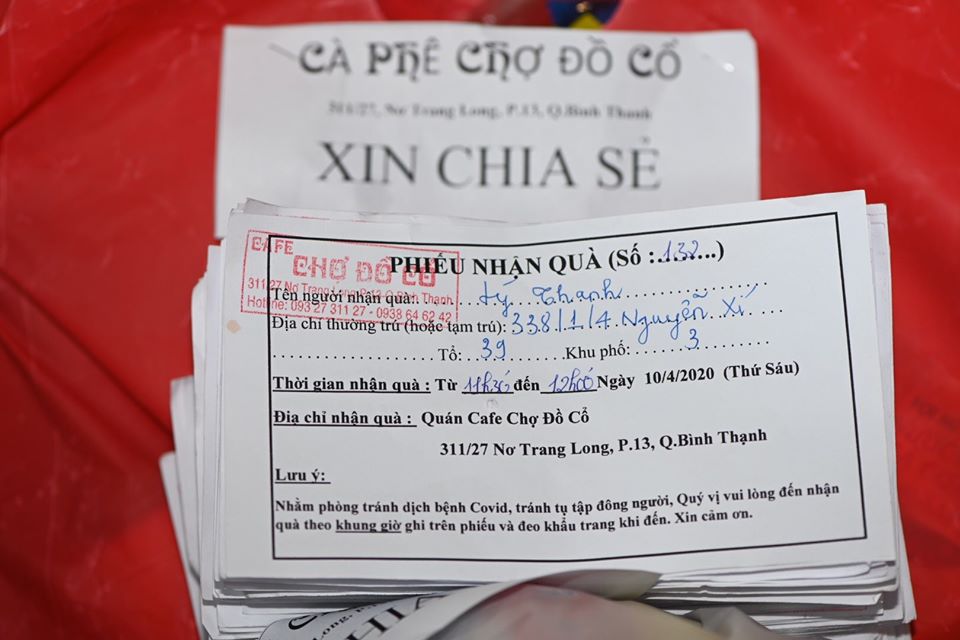 CÀ PHÊ CHỢ ĐỒ CỔ
311/27, Nơ Trang Long, P.13, Q.Bình Thạnh
XIN CHIA SẺ
CAFE
CHỢ ĐỒ CỔ
311/27 Nơ Trang Long P.13 Q.Bình Thạnh
Hotline: 093 27 311 27 - 0938 64 62 42
PHIẾU NHẬN QUÀ (Số :.132...)
Tên người nhận quà: Lý Thanh
Địa chỉ thường trú (hoặc tạm trú): 338/1/4 Nguyễn Xí
Tổ: 39 Khu phố: 3
Thời gian nhận quà : Từ 11h30 đến 12h00 Ngày 10/4/2020 (Thứ Sáu)
Địa chỉ nhận quà : Quán Cafe Chợ Đồ Cổ
311/27 Nơ Trang Long, P.13, Q.Bình Thạnh
Lưu ý:
Nhằm phòng tránh dịch bệnh Covid, tránh tụ tập đông người, Quý vị vui lòng đến nhận
quà theo khung giờ ghi trên phiếu và đeo khẩu trang khi đến. Xin cảm ơn.